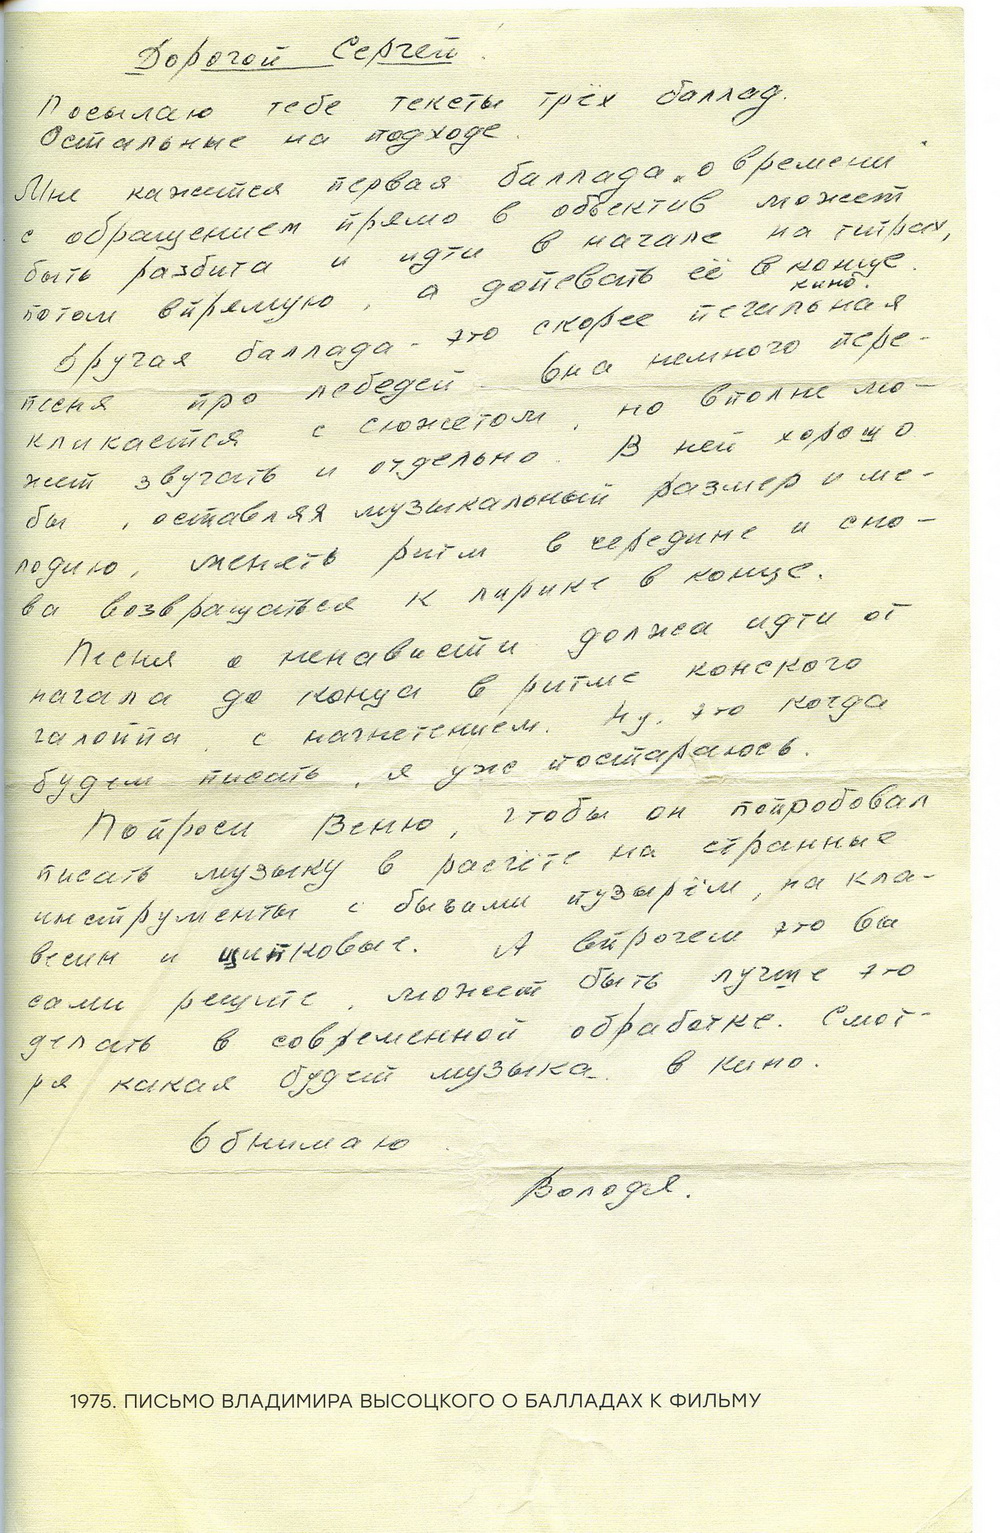 Дорогой Сергей!
Посылаю тебе тексты трёх баллад.
Остальные на подходе.
Мне кажется первая баллада „о времени"
с обращением прямо в объектив может
быть разбита и идти в начале на титрах,
потом впрямую, а допевать её в конце
кино.
Другая баллада - это скорее печальная
песня про лебедей. Она немного пере-
кликается с сюжетом, но вполне мо-
жет звучать и отдельно. В ней хорошо
бы, оставляя музыкальный размер и ме-
лодию, менять ритм в середине и сно-
ва возвращаться к лирике в конце.
Песня о ненависти должна идти от
начала до конца в ритме конского
галоппа, с нагнетением. Ну, это когда
будем писать, я уже постараюсь.
Попроси Веню, чтобы он попробовал
писать музыку в расчёте на странные
инструменты с бычьим пузырём, на кла-
весин и щипковые. А впрочем это Вы
сами решите, может быть лучше это
делать в современной обработке. Смот-
ря какая будет музыка в кино.
Обнимаю
Володя.
1975. ПИСЬМО ВЛАДИМИРА ВЫСОЦКОГО О БАЛЛАДАХ К ФИЛЬМУ